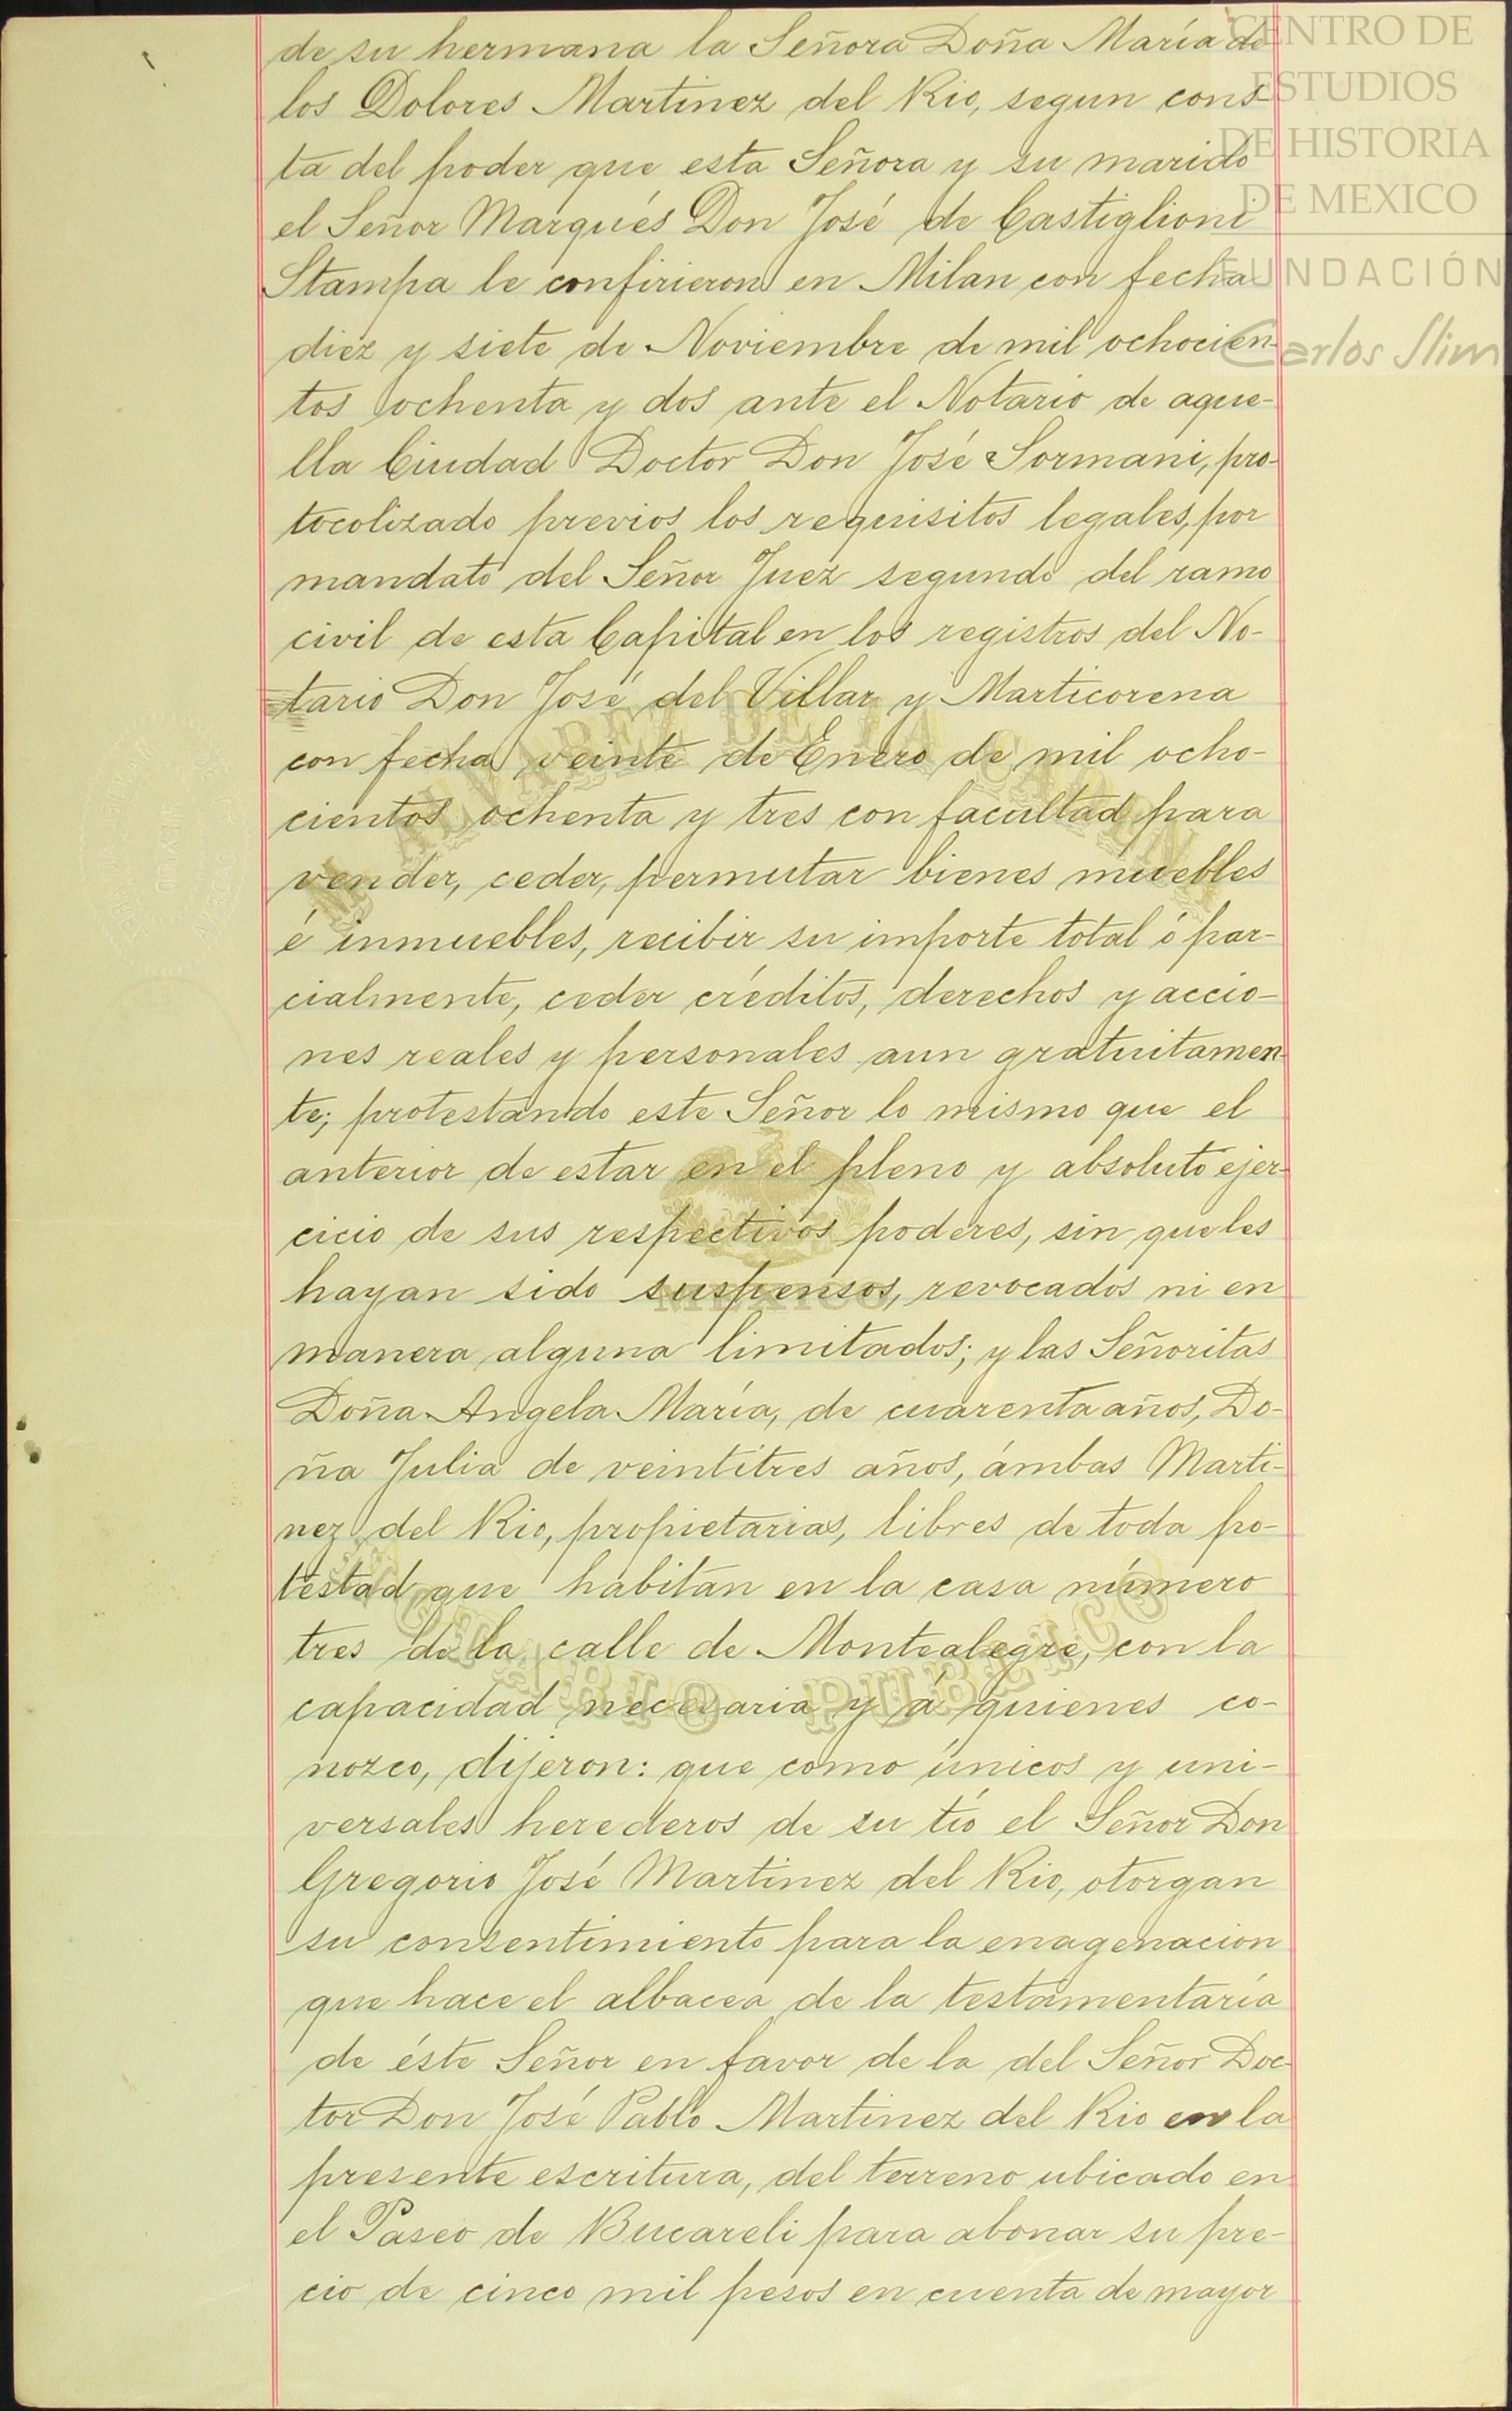 de su hermana la Señora Doña María de
los Dolores Martinez del Rio, segun cons-
ta del poder que esta Señora y su marido
el Señor Marqués Don José de Castiglioni
Stampa le confirieron en Milan con fecha
diez y siete de Noviembre de mil ochocien-
tos ochenta y dos ante el Notario de aque-
lla Ciudad Doctor Don José Sormani, pro-
tocolizado previos los requisitos legales, por
mandato del Señor Juez segundo del ramo
civil de esta Capital en los registros del No-
tario Don José del Villar y Marticorena
con fecha veinte de Enero de mil ocho-
cientos ochenta y tres con facultad para
vender, ceder, permutar bienes muebles
é inmuebles, recibir su importe total ó par-
cialmente, ceder créditos, derechos y accio-
nes reales y personales aun gratuitamen-
te; protestando este Señor lo mismo que el
anterior de estar en el pleno y absoluto ejer-
cicio de sus respectivos poderes, sin que les
hayan sido suspensos, revocados ni en
manera alguna limitados; y las Señoritas
Doña Angela María, de cuarenta años, Do-
ña Julia de veintitres años, ámbas Marti-
nez del Rio, propietarias, libres de toda po-
testad que habitan en la casa número
tres de la calle de Montealegre, con la
capacidad necesaria y á quienes co-
nozco, dijeron: que como únicos y uni-
versales herederos de su tío el Señor Don
Gregorio José Martinez del Rio, otorgan
su consentimiento para la enagenacion
que hace el albacea de la testamentaría
de éste Señor en favor de la del Señor Doc-
tor Don José Pablo Martinez del Rio en la
presente escritura, del terreno ubicado en
el Paseo de Bucareli para abonar su pre-
cio de cinco mil pesos en cuenta de mayor
CENTRO DE
ESTUDIOS
DE HISTORIA
DE MEXICO
FUNDACIÓN
Carlos Slim
MEXICO
NOTARIO PUBLICO